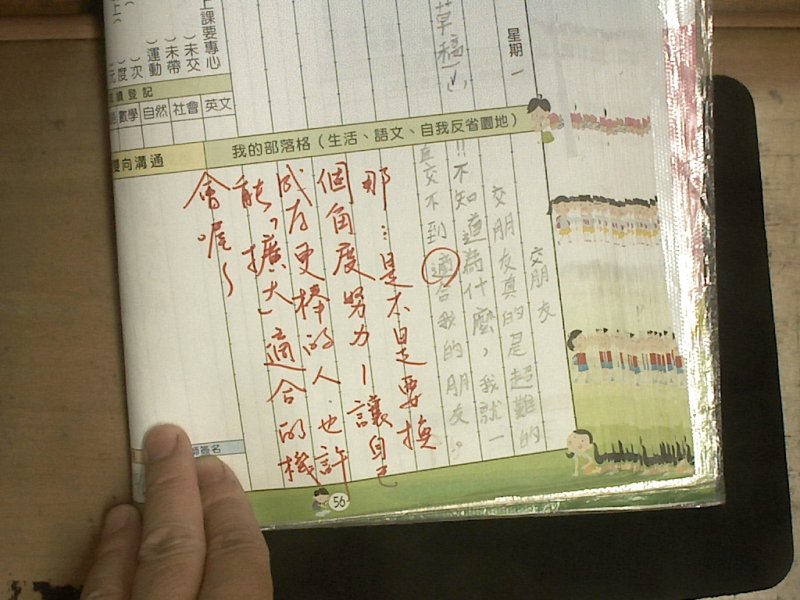 星期一
草稿
上課要專心
)未交
)未帶
)運動
)次
成績登記
數學 自然 社會 英文
我的部落格（生活、語文、自我反省園地）
雙向溝通
交朋友
交朋友真的是超難的
!!不知道為什麼，我就一
直交不到適合我的朋友。
那…是不是要換
個角度努力－讓自己
成為更棒的人.也許
能「擴大」適合的機
會喔～
簽名
56